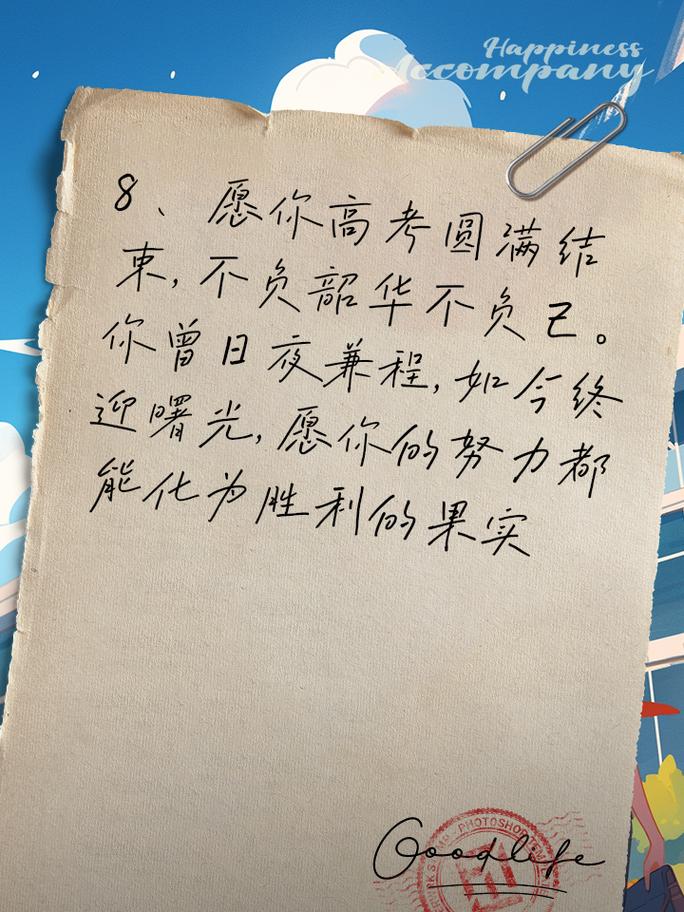 Happiness
Accompany
8、愿你高考圆满结
束,不负韶华不负己。
你曾日夜兼程,如今终
迎曙光,愿你的努力都
能化为胜利的果实
PHOTOSHOP
Goodlife